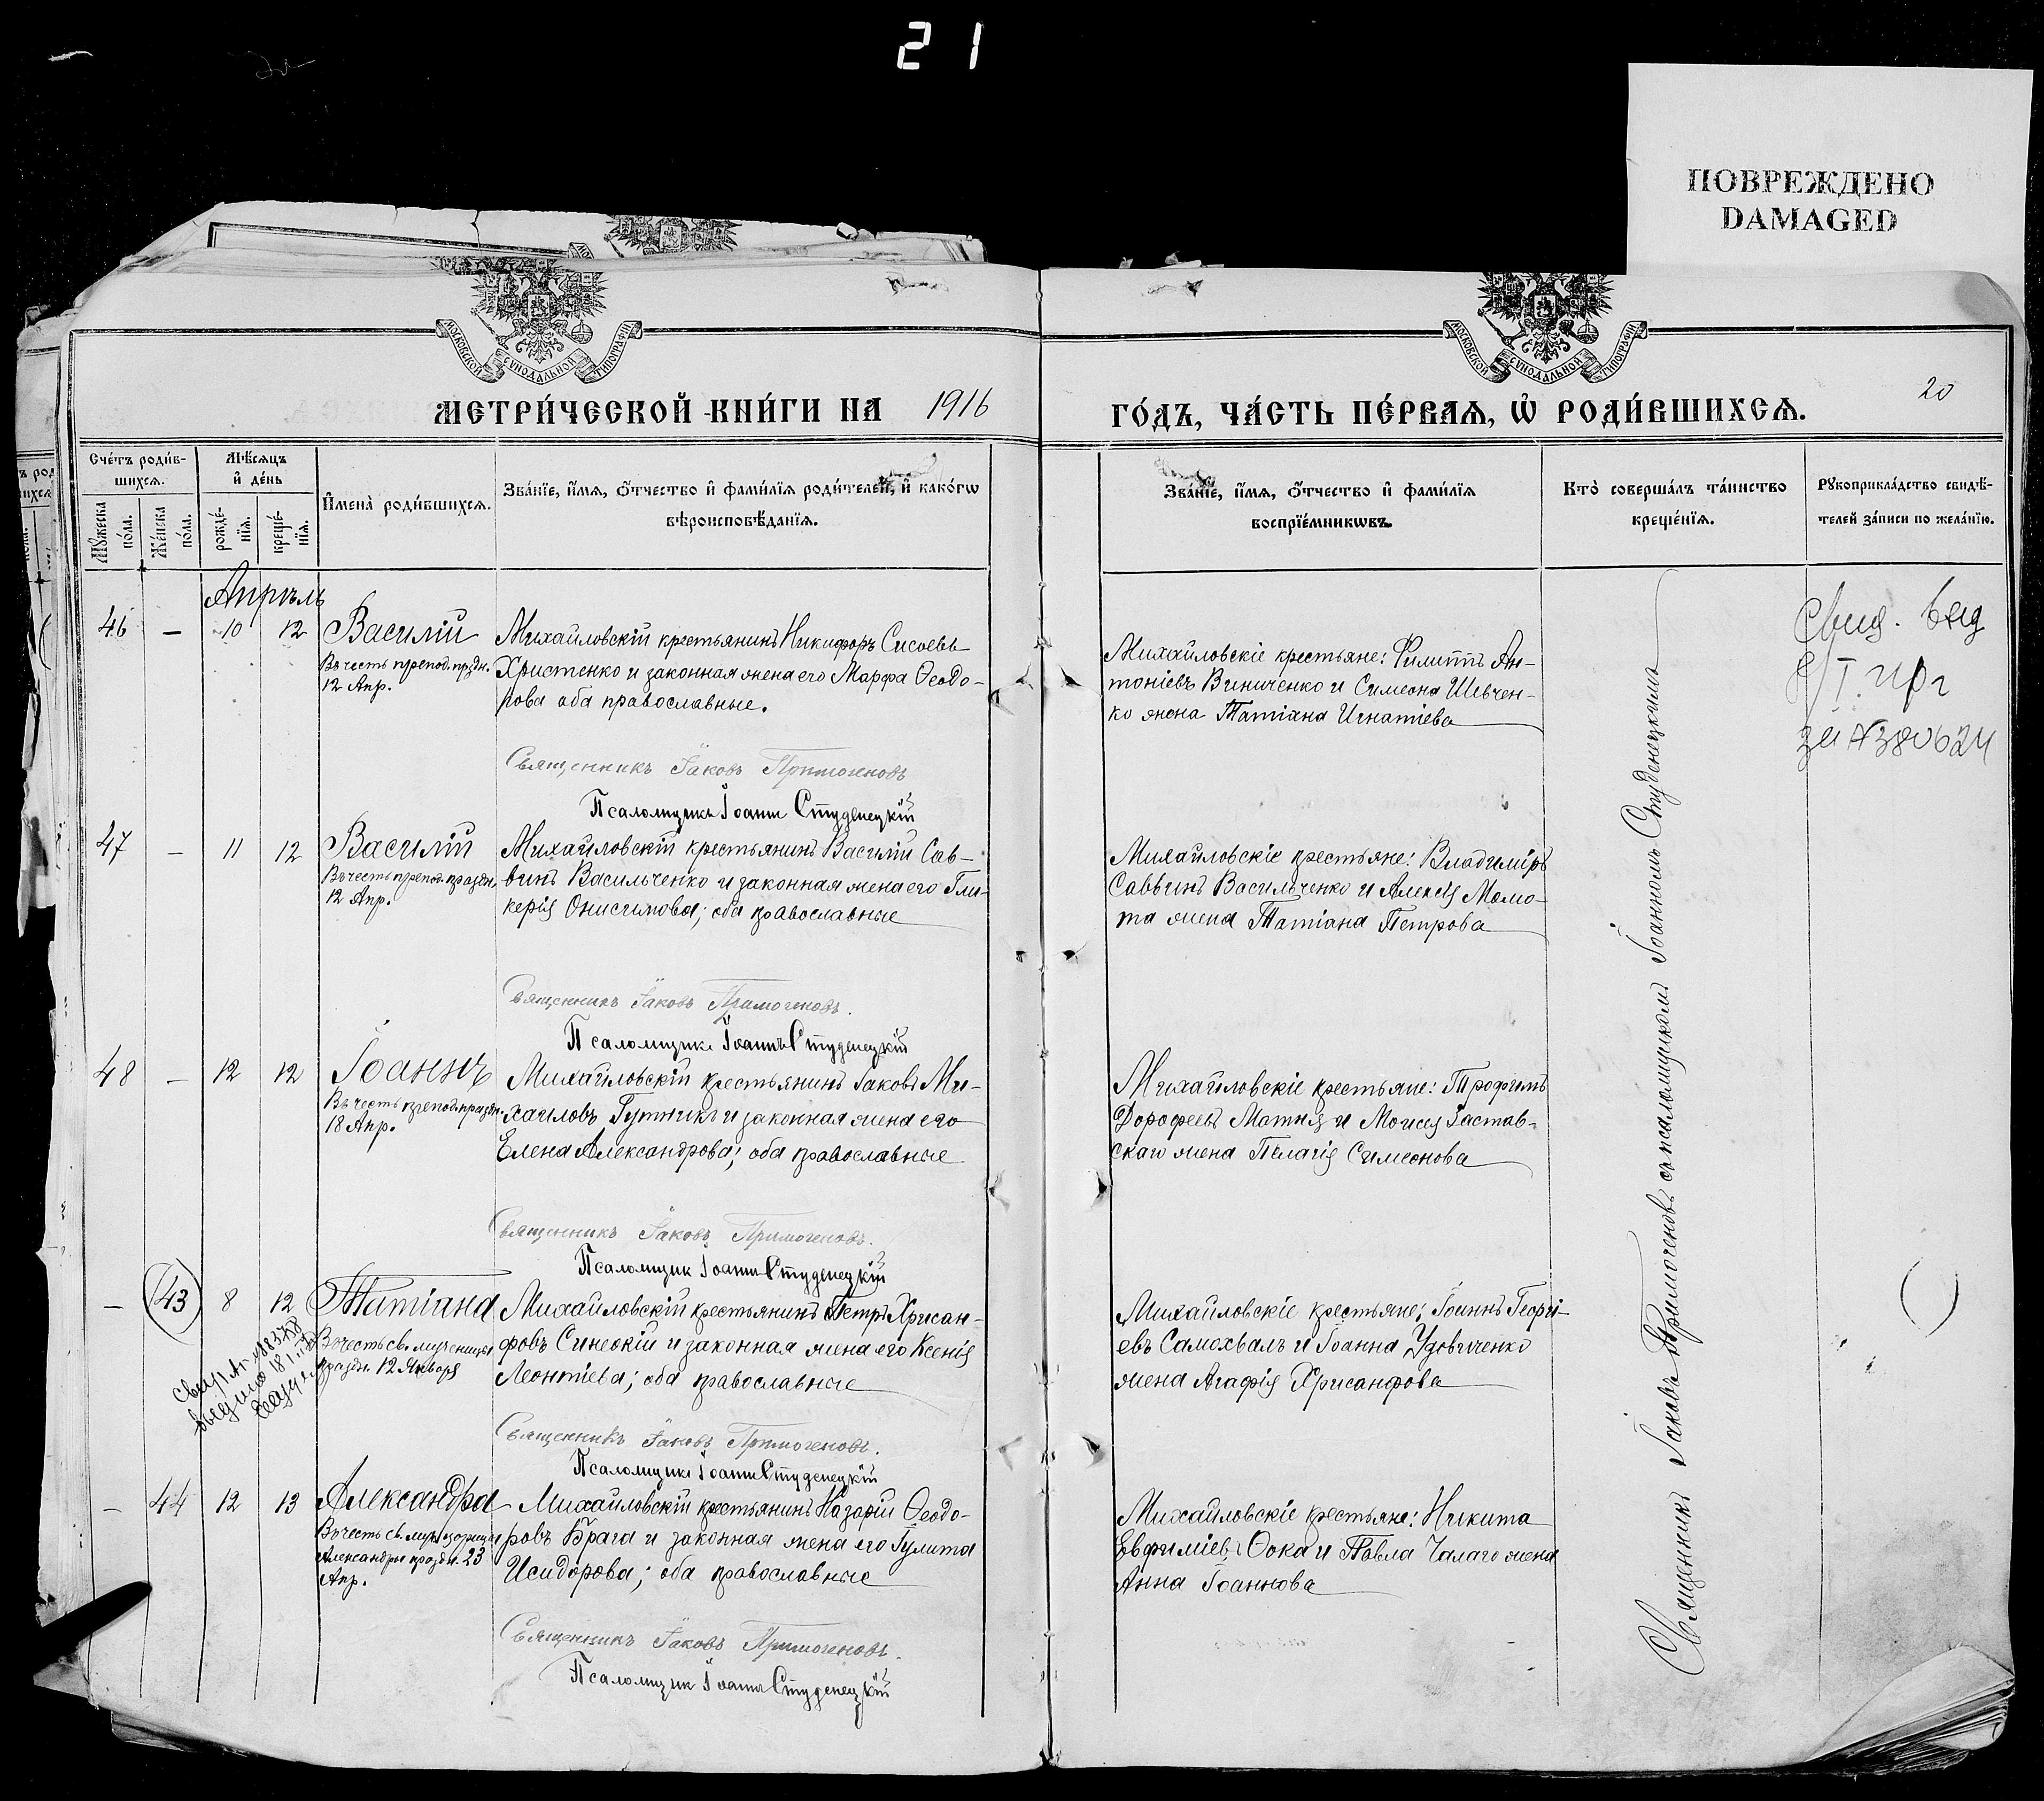 21
ПОВРЕЖДЕНО
DAMAGED
МОСКОВСКОЙ СУНОДАЛЬНОЙ ТИПОГРАФІИ
МОСКОВСКОЙ СУНОДАЛЬНОЙ ТИПОГРАФІИ
20
МЕТРИ́ЧЕСКОЙ КНИ́ГИ НА 1916
ГО́ДЪ, ЧА́СТЬ ПЕ́РВАѦ, Ѡ҆ РОДИ́ВШИХСѦ.
Сче́тъ роди́в-
шихсѧ.
Мѣ́сѧцъ
и҆ де́нь
Мꙋ́жеска по́ла.
Же́нска по́ла.
рожде́-
нїѧ.
креще́-
нїѧ.
И҆мена̀ роди́вшихсѧ.
Зва́нїе, и҆́мѧ, ѻ҆́тчество и҆ фами́лїѧ роди́телей, и҆ како́гѡ
вѣроисповѣ́данїѧ.
Зва́нїе, и҆́мѧ, ѻ҆́тчество и҆ фами́лїѧ
воспрїе́мникѡвъ.
Кто̀ соверша́лъ та́инство
креще́нїѧ.
Рꙋкоприкла́дство свидѣ́-
телей за́писи по жела́нїю.
Апрѣль
46 — 10 12 Василій
Въ честь препод. прздн.
12 Апр.
Михайловскій крестьянинъ Никифоръ Сисоевъ
Христенко и законная жена его Марфа Ѳеодо-
рова оба православные.
Священникъ Іаковъ Примогеновъ
Псаломщикъ Іоаннъ Студенецкій
Михайловскіе крестьяне: Филиппъ Ан-
тоніевъ Виниченко и Симеона Шевчен-
ко жена Татіана Игнатіева
47 — 11 12 Василій
Въ честь препод. праздн.
12 Апр.
Михайловскій крестьянинъ Василій Сав-
винъ Васильченко и законная жена его Гли-
керія Онисимова; оба православные
Священникъ Іаковъ Примогеновъ.
Псаломщикъ Іоаннъ Студенецкій
Михайловскіе крестьяне: Владиміръ
Саввинъ Васильченко и Алексія Момо-
та жена Татіана Петрова
48 — 12 12 Іоаннъ
Въ честь препод. праздн.
18 Апр.
Михайловскій крестьянинъ Іаковъ Ми-
хаиловъ Гутникъ и законная жена его
Елена Александрова; оба православные
Священникъ Іаковъ Примогеновъ.
Псаломщик Іоаннъ Студенецкій
Михайловскіе крестьяне: Трофимъ
Дорофеевъ Матня и Моисея Застав-
скаго жена Пелагія Симеонова
— 43 8 12 Татіана
Въ честь св. мученицы
праздн. 12 Января
Михайловскій крестьянинъ Петръ Хрисан-
фовъ Синескій и законная жена его Ксенія
Леонтіева; оба православные
Священникъ Іаковъ Примогеновъ.
Псаломщикъ Іоаннъ Студенецкій
Михайловскіе крестьяне: Іоаннъ Георгі-
евъ Самохвалъ и Іоанна Удовиченко
жена Агафія Хрисанфова
— 44 12 13 Александра
Въ честь св. муч. царицы
Александры праздн. 23
Апр.
Михайловскій крестьянинъ Назарій Ѳеодо-
ровъ Брага и законная жена его Іулита
Исидорова; оба православные
Священникъ Іаковъ Примогеновъ.
Псаломщик Іоаннъ Студенецкій
Михайловскіе крестьяне: Никита
Евфиміевъ Ѳока и Павла Чалаго жена
Анна Іоаннова
Священникъ Іаковъ Примогеновъ съ псаломщикомъ Іоанномъ Студенецкимъ